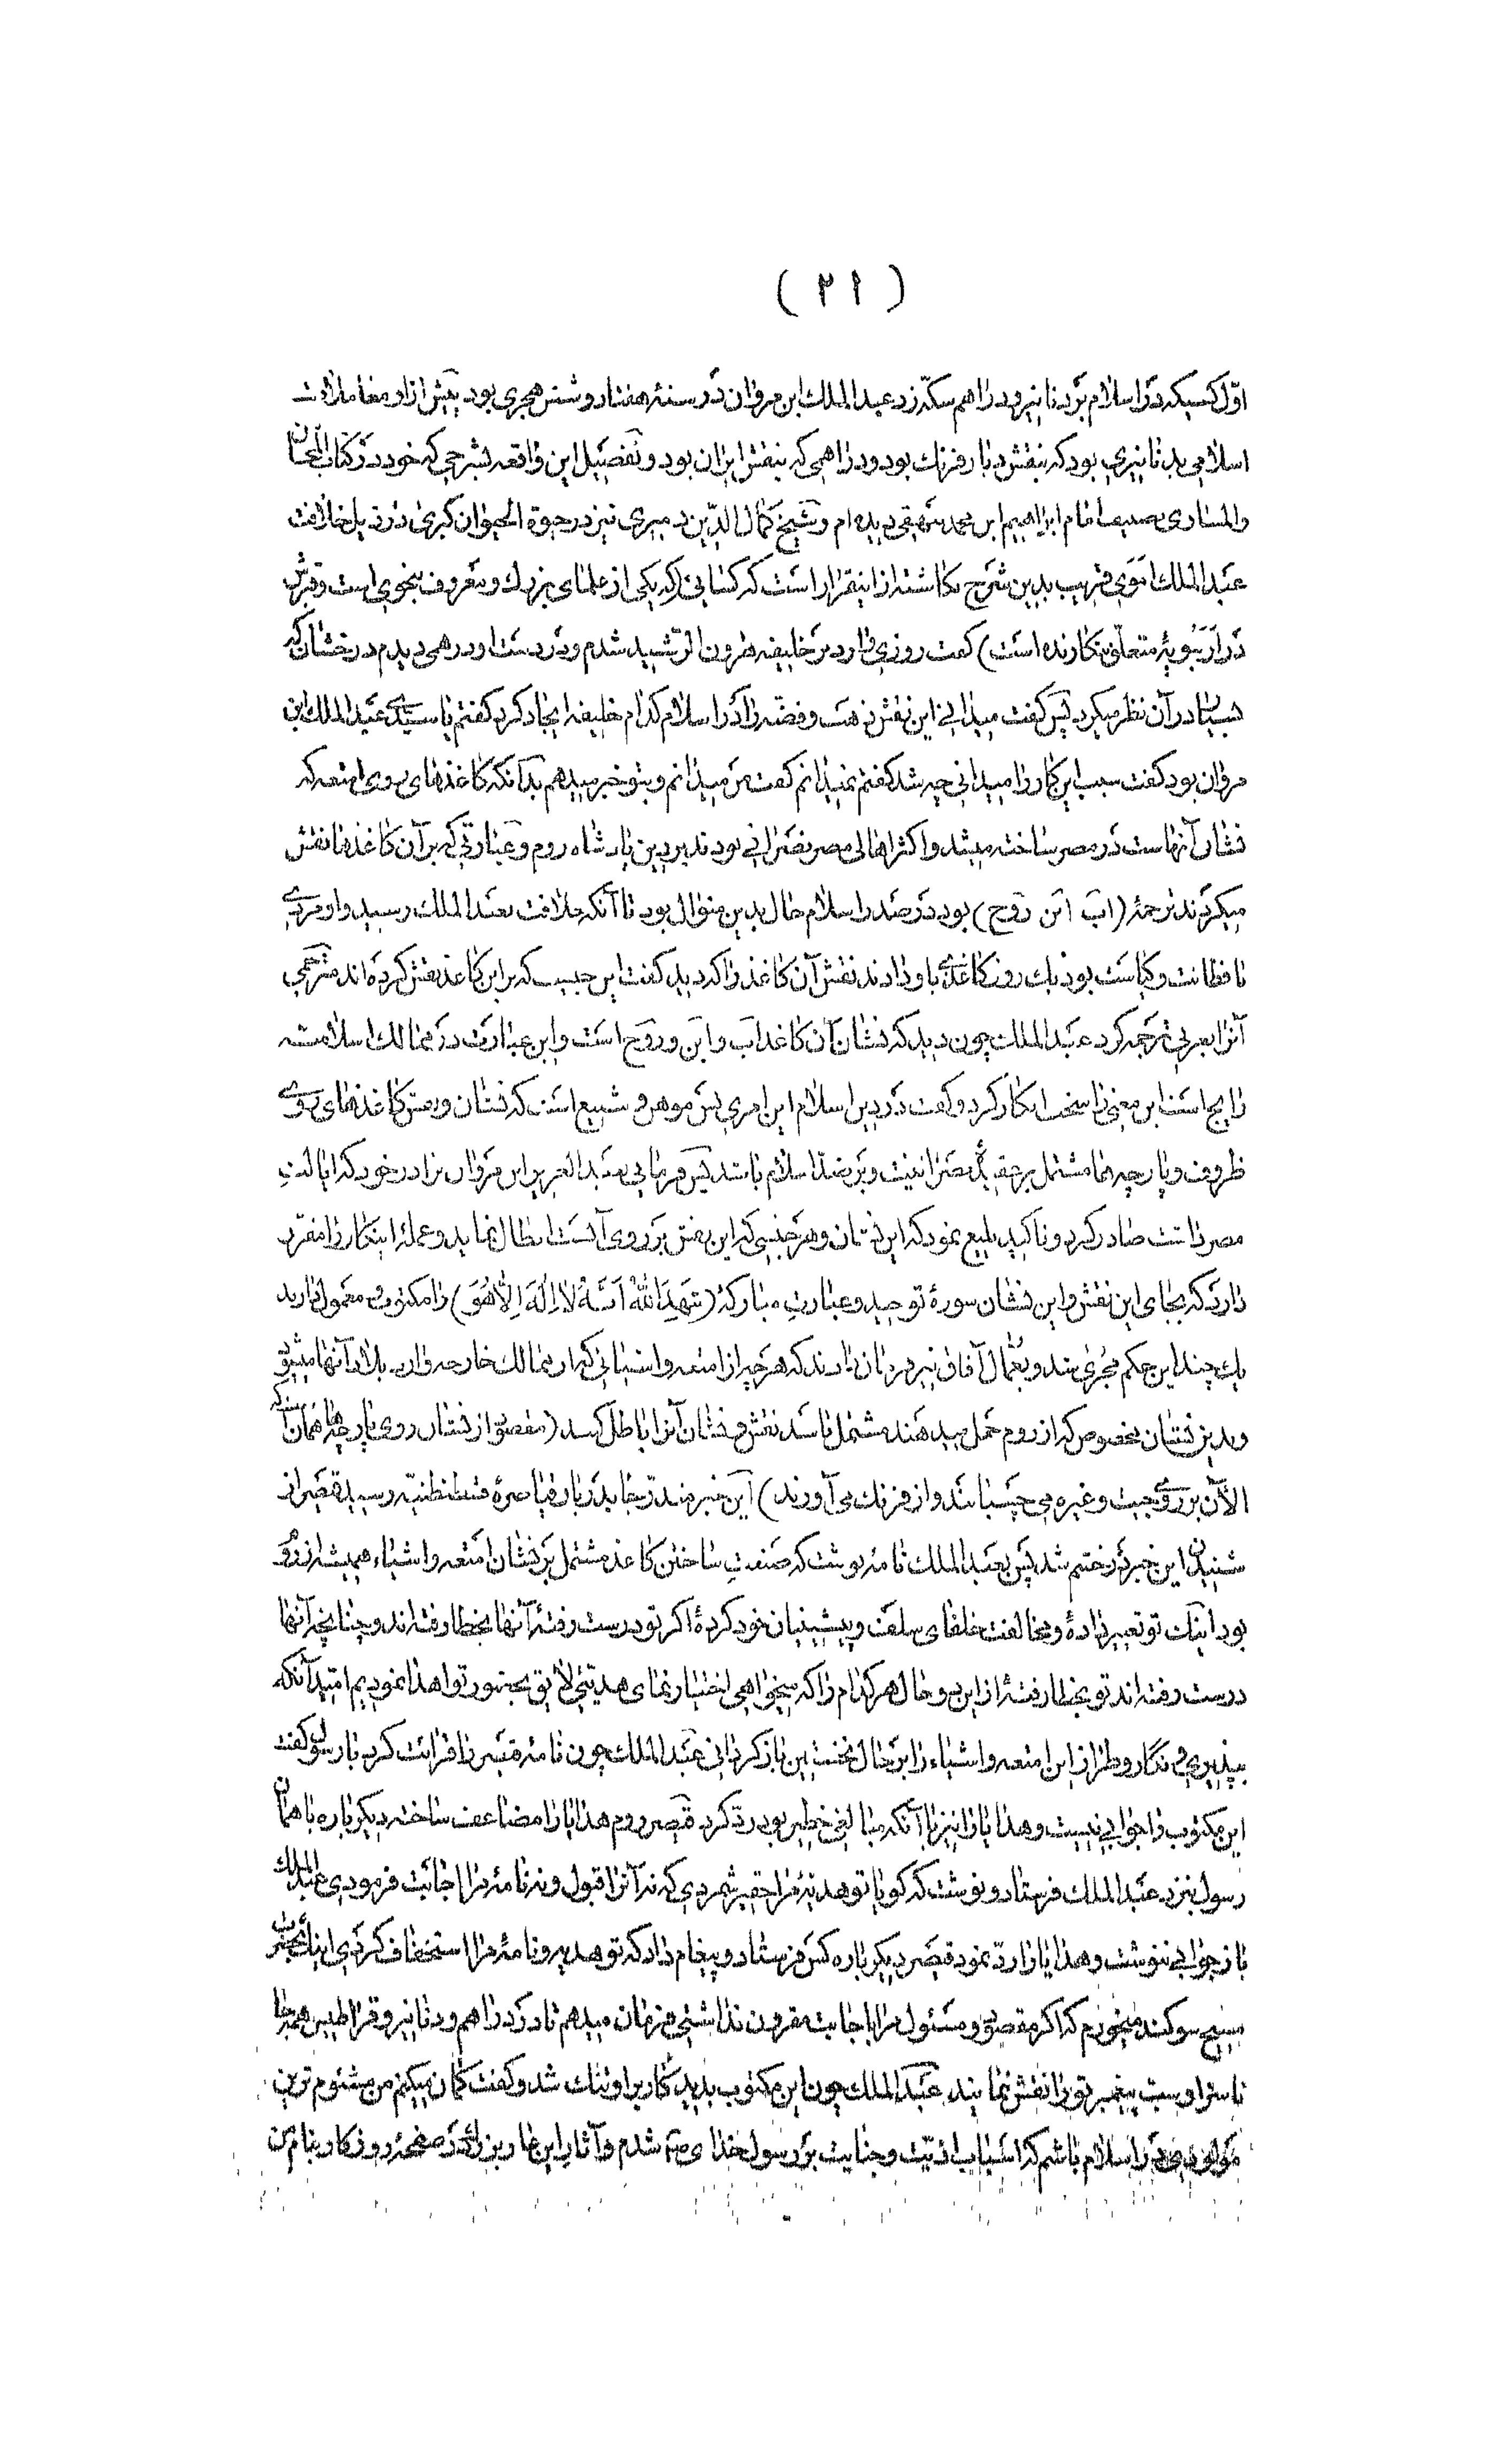 ( ۲۱ )
اوّل کسیکه در اسلام بر دنانیر و دراهم سکّه زد عبد الملك ابن مروان در سنهٔ هفتاد و شش هجری بود پیش از او معاملات
اسلامی بدنانیری بود که بنقش دربار فرنك بود و دراهمی که بنقش ایران بود و تفصیل این واقعه بشرحی که خود در کتاب المحاسن
والمساوی تصنیف امام ابراهیم ابن محمد بیهقی دیده‌ام و شیخ کمال الدّین دمیری نیز در حیوة الحیوان کبری در ذیل خلافت
عبد الملك اموی قریب بدین شرح نگاشته از اینقرار است که کسائی (که یکی از علمای بزرك و معروف بنحوی است و قبرش
در ارنبویهٔ متعلّق بنگارنده است) گفت روزی وارد بر خلیفه هرون الرّشید شدم و در دست او درهمی دیدم درخشان که
بسیار در آن نظر میکرد پس گفت میدانی این نقش ذهب و فضّه را در اسلام کدام خلیفه ایجاد کرد گفتم یا سیّدی عبد الملك ابن
مروان بود گفت سبب این کار را میدانی چه شد گفتم نمیدانم گفت من میدانم و بتو خبر میدهم بدانکه کاغذهای روی امتعه که
نشان آنهاست در مصر ساخته میشد و اکثر اهالی مصر نصرانی بودند بر دین پادشاه روم و عبارتی که بر آن کاغذها نقش
میکردند ترجمهٔ (اب ابن روح) بود در صدر اسلام حال بدین منوال بود تا آنکه خلافت بعبد الملك رسید و او مردی
با فطانت و کیاست بود یك روز کاغذی باو دادند نقش آن کاغذ را که دید گفت این چیست که بر این کاغذ نقش کرده‌اند مترجمی
آنرا بعربی ترجمه کرد عبد الملك چون دید که نشان آن کاغذ اب و ابن و روح است و این عبارت در ممالك اسلامیّه
رایج است این معنی را سخت انکار کرد و گفت در دین اسلام این امری بس موهن و شنیع است که نشان و نقش کاغذهای روی
ظروف و پارچه‌ها مشتمل بر عقیدهٔ نصرانیّت و بر ضدّ اسلام باشد پس فرمانی بعبد العزیز ابن مروان برادر خود که ایالت
مصر داشت صادر کرد و تاکید بلیغ نمود که این نشان و هر جنسی که این نقش بر روی آنست ابطال نماید و عملهٔ اینکار را مقرّر
دارد که بجای این نقش و این نشان سورهٔ توحید و عبارت مبارکهٔ (شَهِدَ اللهُ اَنَّهُ لا اِلٰهَ اِلّا هُوَ) را مکتوب و معمول دارند
یك چند این حکم مجری شد و بعمّال آفاق نیز فرمان دادند که هر چه از امتعه و اشیائی که از ممالك خارجه وارد بلاد آنها میشود
و بدین نشان مخصوص که از روم حمل میدهند مشتمل باشد نقش و نشان آنرا باطل کنند (مقصود از نشان روی پارچه‌ها همان است که
الآن بر روی چیت و غیره می‌چسبانند و از فرنك می‌آورند) این خبر متدرّجا بدربار قیاصرهٔ قسطنطنیّه رسید قیصر از
شنیدن این خبر در خشم شد پس بعبد الملك نامه نوشت که صنعت ساختن کاغذ مشتمل بر نشان امتعه و اشیاء همیشه از روم
بود اینك تو تغییر دادهٔ و مخالفت خلفای سلف و پیشینیان خود کردهٔ اگر تو درست رفتهٔ آنها بخطا رفته‌اند و چنانچه آنها
درست رفته‌اند تو بخطا رفتهٔ از این دو حال هر کدام را که میخواهی اختیار نمای هدیّتی لایق بحضور تو اهدا نمودیم امّید آنکه
بپذیری و نگار و طراز این امتعه و اشیاء را بر حال نخستین باز گردانی عبد الملك چون نامهٔ قیصر را قرائت کرد با رسول گفت
این مکتوب را جوابی نیست و هدایا را نیز با آنکه مبالغی خطیر بود ردّ کرد قیصر روم هدایا را مضاعف ساخته دیگر باره با همان
رسول بنزد عبد الملك فرستاد و نوشت که گویا تو هدیّهٔ مرا حقیر شمردی که نه آنرا قبول و نه نامهٔ مرا اجابت فرمودی عبد الملك
باز جوابی ننوشت و هدایا را ردّ نمود قیصر دیگر باره کس فرستاد و پیغام داد که تو هدیه و نامهٔ مرا استخفاف کردی اینك بحضرت
مسیح سوگند میخورم که اگر مقصود و مسئول مرا باجابت مقرون نداشتی فرمان میدهم تا در دراهم و دنانیر و قراطیس همه جا
ناسزا و سبّ پیغمبر تو را نقش نمایند عبد الملك چون این مکتوب بدید کار بر او تنك شد و گفت گمان میکنم من مشئوم ترین
مولودی در اسلام باشم که اسباب اذیّت و جنایت بر رسول خدای ص شدم و آثار این عار بزرك در صفحهٔ روزگار بنام من